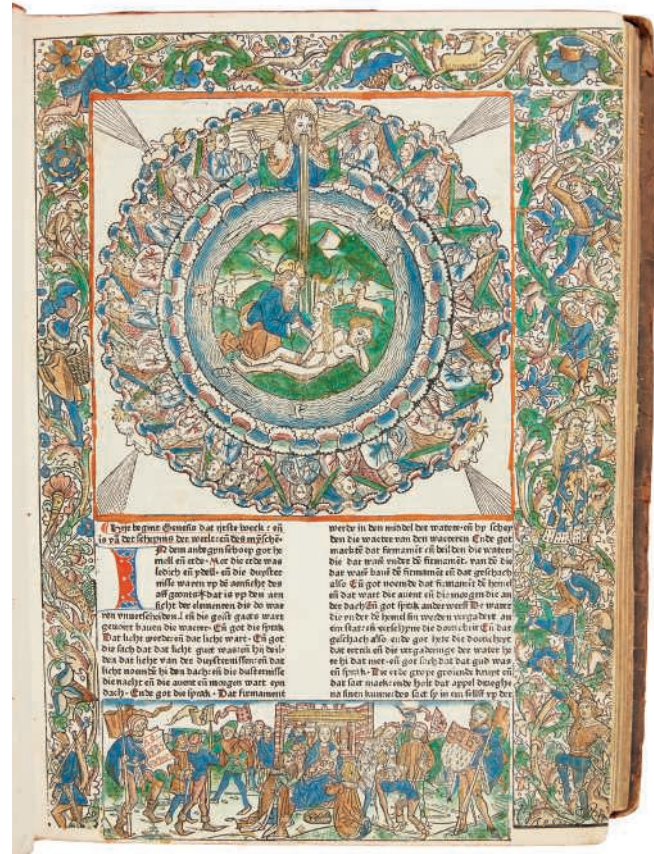 Hyr begint Genesis dat irste boeck: eñ
is vā der schepung der werlt: eñ des mȳschē
IN dem anbegyn schoep got he
mell eñ erde. Mer die erde was
ledich eñ ydell. eñ die duyster
nisse waren vp de aensicht des
affgronts dat is vp den aen
sicht der elementen die do wa
ren vnuerscheiden. eñ die geist gaats wart
geuoert bauen die waeter. Eñ got die sprak
Dat licht werde. eñ dat licht wart. Eñ got
die sach dat dat licht guet was. eñ hy deil
den dat licht van der duysternissen. eñ dat
licht noemde hi den dach. eñ die duisternisse
die nacht eñ die auent eñ morgen wart eyn
dach. Ende got die sprak. Dat firmament
werde in den middel der wateren. eñ hy schey
den die waeter van den waeteren Ende got
maekte dat firmamēt eñ deilden die watere
die dar warē vnder dē firmamēt. van dē die
dar warē bauē dē firmamēt eñ dat geschach
also Eñ got noemde dat firmamēt dē hemel
eñ dat wart die auent eñ die morgen die an
der dach Eñ got sprak anderwerff De water
die vnder dē hemel sin werden vergadert an
ein stat. eñ erschyne die dorricheit Eñ dat
geschach also. ende got hete die dorricheyt
dat ertrik eñ die vergaderinge der water he
te hi dat mer. eñ got sach dat dat gud was
eñ sprak. Die erde grope groiende kruyt eñ
dat saet make. ende holt dat appel
na sinen kunne. des saet sy in em seluff vp der